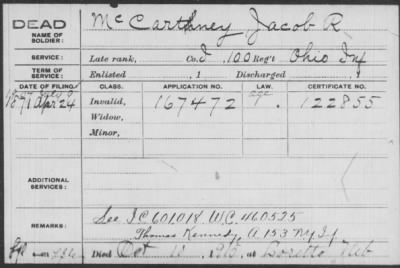 DEAD
NAME OF SOLDIER:
McCarthney, Jacob R
SERVICE: Late rank, Co. I, 100 Reg't Ohio Inf
TERM OF SERVICE: Enlisted , 1 Discharged , 1
DATE OF FILING. CLASS. APPLICATION NO. LAW. CERTIFICATE NO.
1871 Apr 24 Invalid, 167472 122855
Widow,
Minor,
ADDITIONAL SERVICES:
REMARKS:
See I C 601018 W C. 460525
Thomas Kennedy, A 153 N.Y. If
Died Oct 11 at Loretto Neb